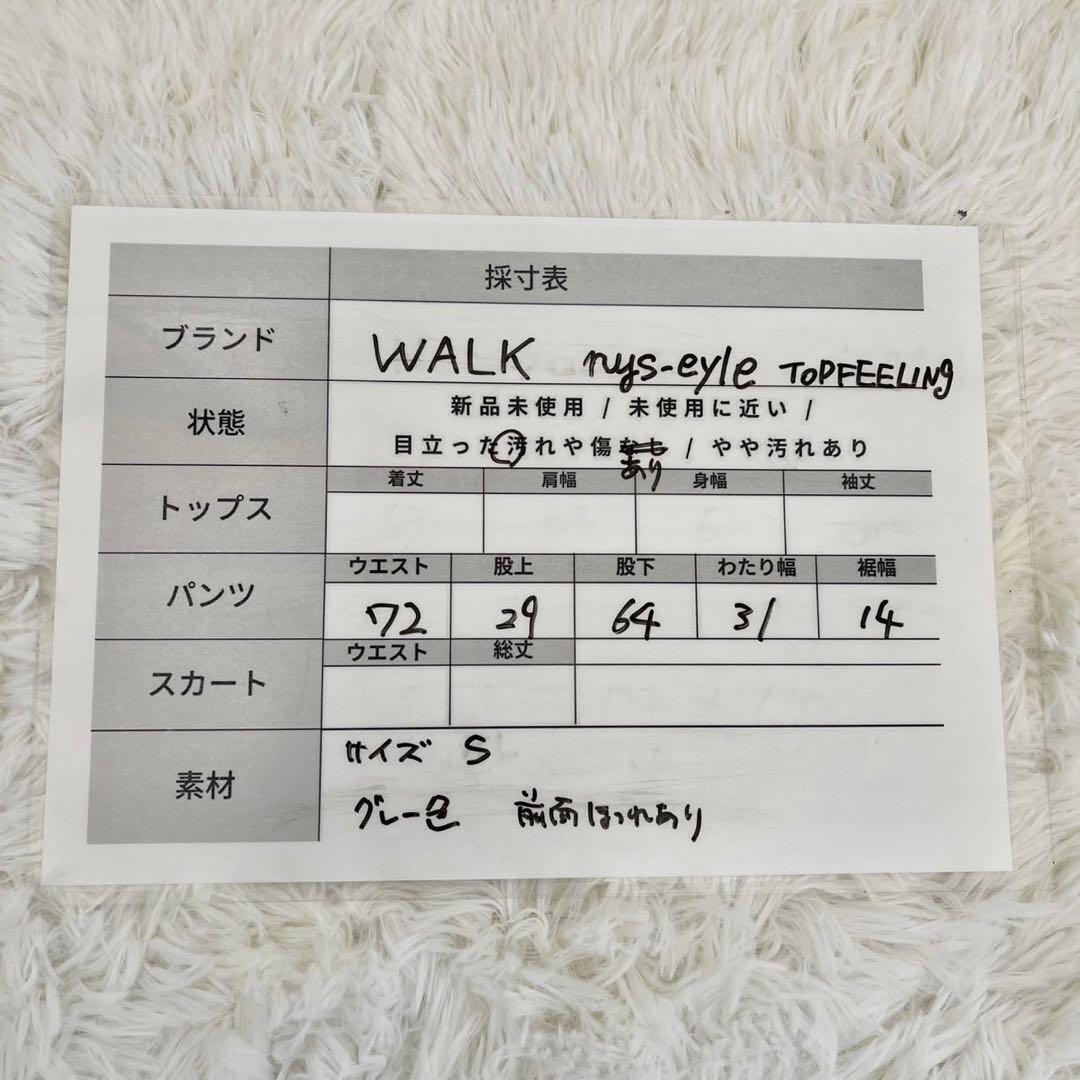 採寸表
ブランド WALK nys-eyle TOPFEELING
状態 新品未使用 / 未使用に近い /
目立った汚れや傷なし / やや汚れあり
あり
トップス 着丈 肩幅 身幅 袖丈
パンツ ウエスト 股上 股下 わたり幅 裾幅
72 29 64 31 14
スカート ウエスト 総丈
素材 サイズ S
グレー色 前面ほつれあり